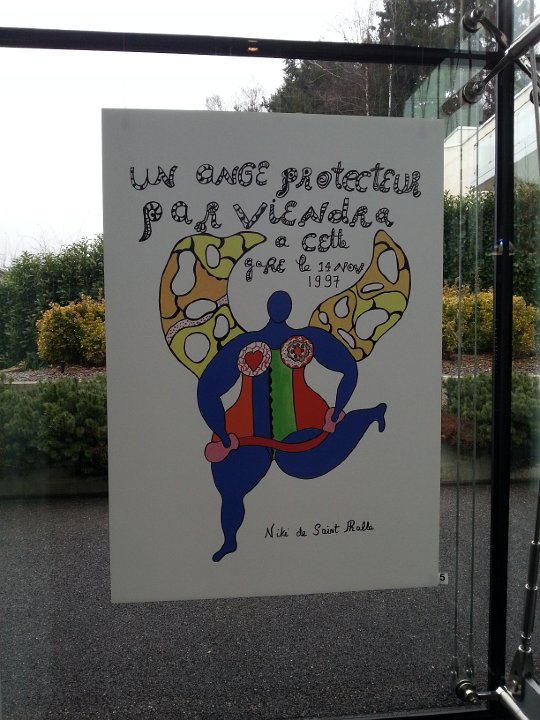 UN ANGE PROTECTEUR
PAR VIENDRA
A CETTE
GARE le 14 NOV
1997
Niki de Saint Phalle
5